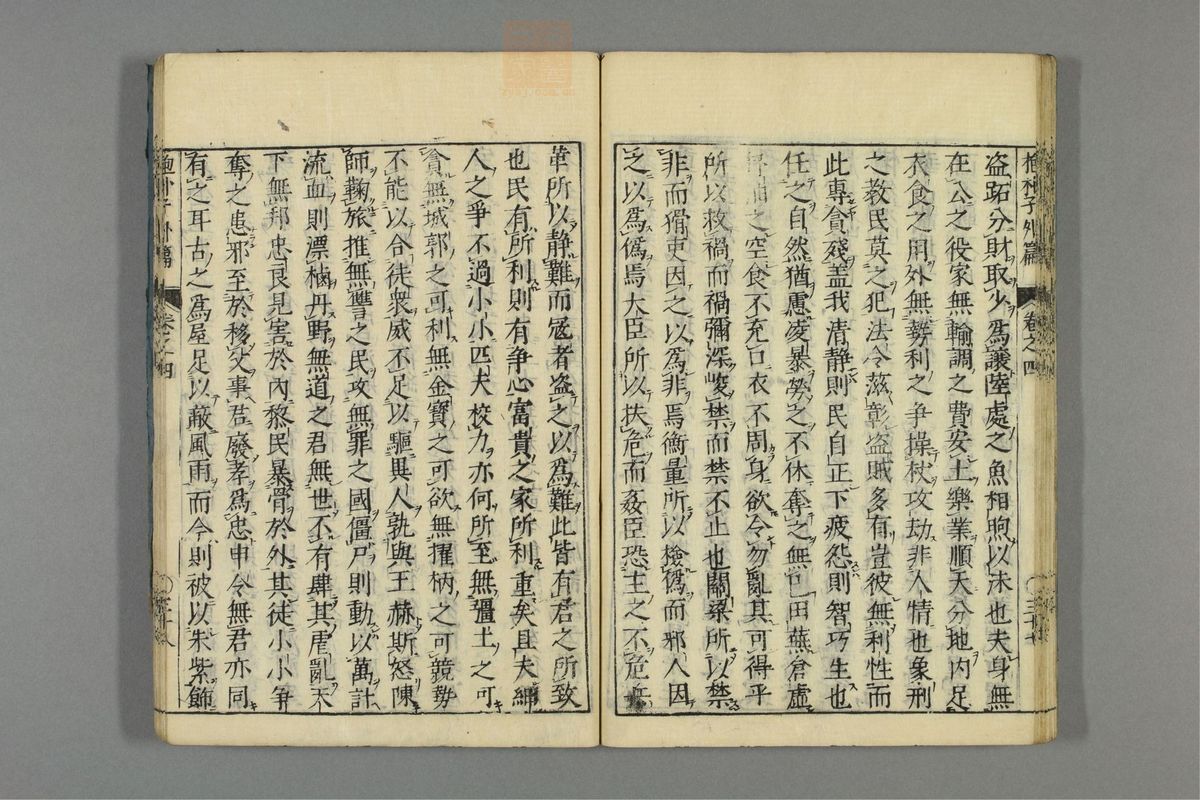 抱朴子外篇 卷之四
盗跖分財取少爲讓陸處之魚相煦以沫也夫身無
在公之役家無輸調之費安土樂業順天分地內足
衣食之用外無勢利之爭操杖攻劫非人情也象刑
之教民莫之犯法令滋彰盗賊多有豈彼無利性而
此專貪殘盖我清静則民自正下疲怨則智巧生也
任之自然猶慮凌暴勞之不休奪之無已田蕪倉虛
杼柚之空食不充口衣不周身欲令勿亂其可得乎
所以救禍而禍彌深峻禁而禁不止也關梁所以禁
非而猾吏因之以爲非焉衡量所以檢僞而邪人因
之以爲僞焉大臣所以扶危而姦臣恐主之不危兵
革所以静難而宼者盗之以爲難此皆有君之所致
也民有所利則有爭心富貴之家所利重矣且夫細
人之爭不過小小匹夫校力亦何所至無疆土之可
貪無城郭之可利無金寶之可欲無擢柄之可競勢
不能以合徒衆威不足以驅異人孰與王赫斯怒陳
師鞠旅推無讐之民攻無罪之國僵尸則動以萬計
流血則漂櫓丹野無道之君無世不有肆其虐亂天
下無邦忠良見害於內黎民暴骨於外其徒小小爭
奪之患邪至於移父事君廢孝爲忠申令無君亦同
有之耳古之爲屋足以蔽風雨而今則被以朱紫飾
抱朴子外篇 卷之四